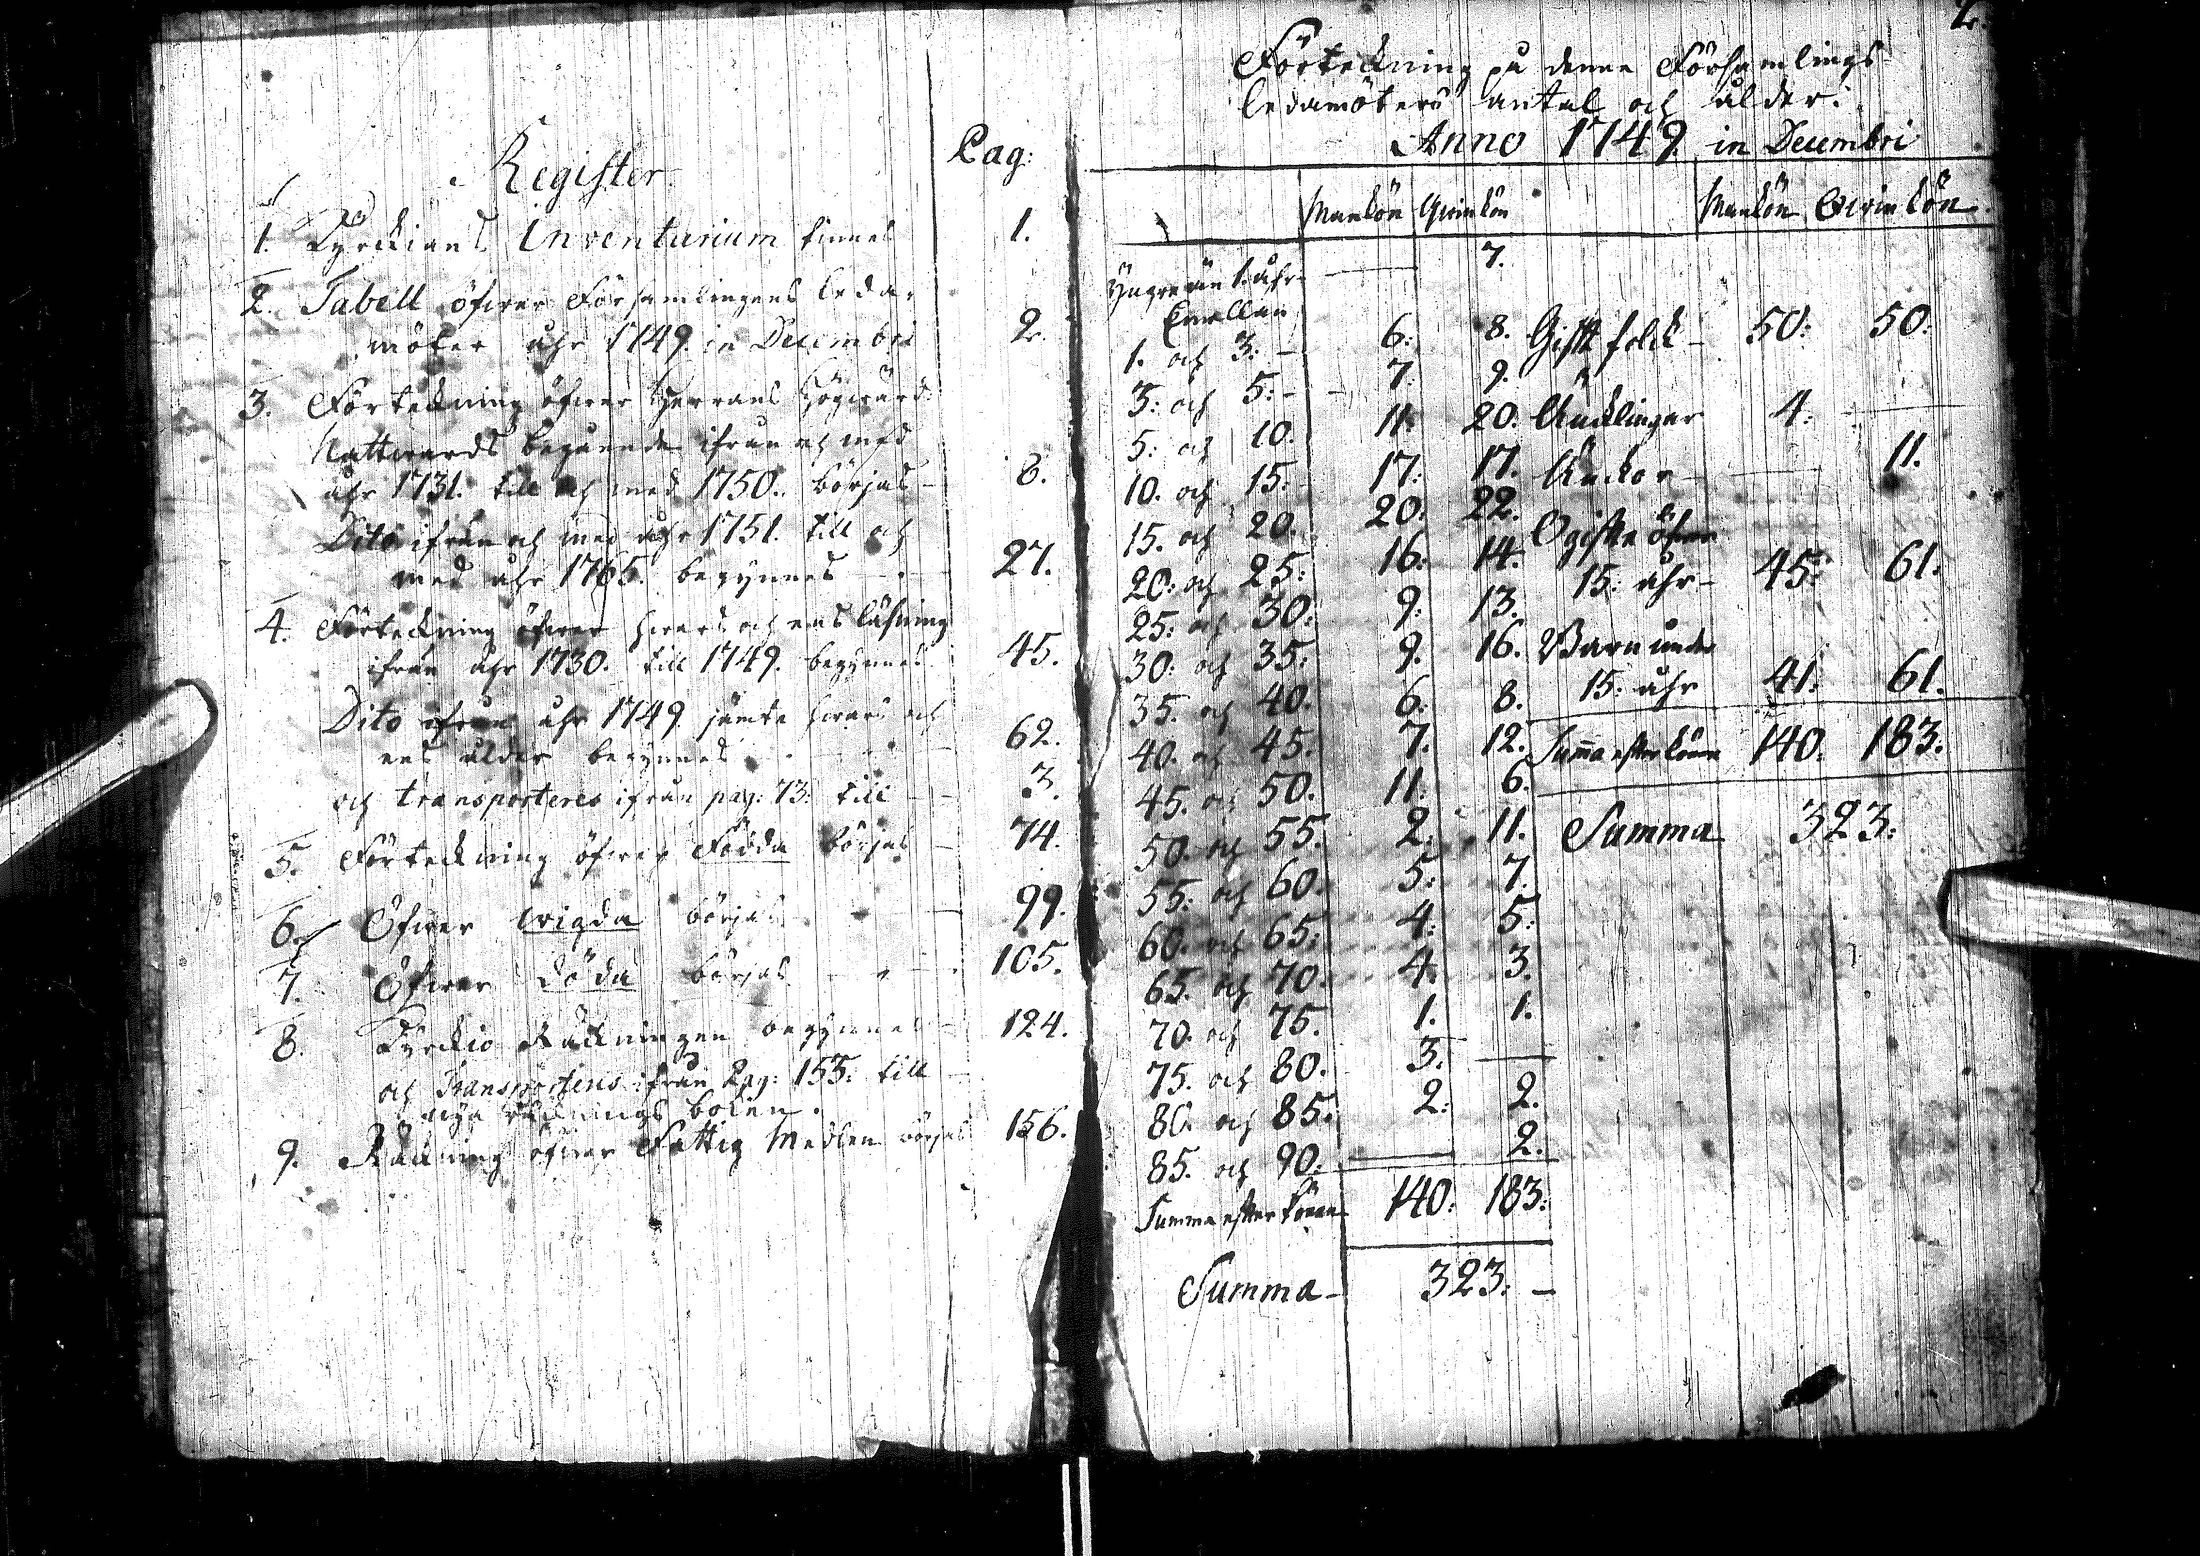 Register
Pag:
1. Kyrckians Inventarium finnes 1.
2. Tabell öfwer Församlingens leda-
möter åhr 1749. in Decembri 2.
3. Förteckning öfwer Herrans Högwärd:
Nattwards begående ifrån och med
åhr 1731. till och med 1750. börjas – 8.
Dito ifrån och med åhr 1751. till och
med åhr 1765. begynnes – 27.
4. Förteckning öfwer hwars och ens läsning
ifrån åhr 1730. till 1749. begynnes 45.
Dito ifrån åhr 1749. jämte hwars och
ens ålder begynnes 62.
och transporteres ifrån pag: 73: till – 3.
5. Förteckning öfwer Födda börjas – 74.
6. Öfwer wigda börjas – 99.
7. Öfwer Döda börjas – 105.
8. Kyrckio Räckningen begynnes – 124.
och Transporteres ifrån Pag: 155: till
nya räcknings boken.
9. Räckning öfwer Fattig Medlen börjas 156.
2.
Förteckning på denne Församlings
ledamöters antal och ålder.
Anno 1749. in Decembri
Mankön Qwinkön Mankön Qwinkön
Yngre än 1. åhr – 7.
Emellan
1. och 3. – 6. 8. Gift folck – 50: 50:
3: och 5: – 7. 9.
5: och 10. 11. 20. Äncklingar 4: –
10. och 15: 17: 17. Änckor – 11.
15. och 20. 20: 22. Ogifte öfwer
20: och 25: 16: 14. 15: åhr – 45: 61:
25: och 30: 9: 13.
30: och 35: 9. 16. Barn under
35. och 40. 6: 8. 15: åhr 41: 61.
40. och 45. 7. 12. Summa efter könen 140. 183.
45. och 50. 11. 6.
50. och 55. 2: 11. Summa 323:
55: och 60. 5: 7.
60. och 65: 4: 5:
65. och 70. 4. 3.
70. och 75. 1. 1.
75. och 80. 3. –
80. och 85. 2: 2.
85. och 90: – 2.
Summa efter könen 140: 183:
Summa – 323: –